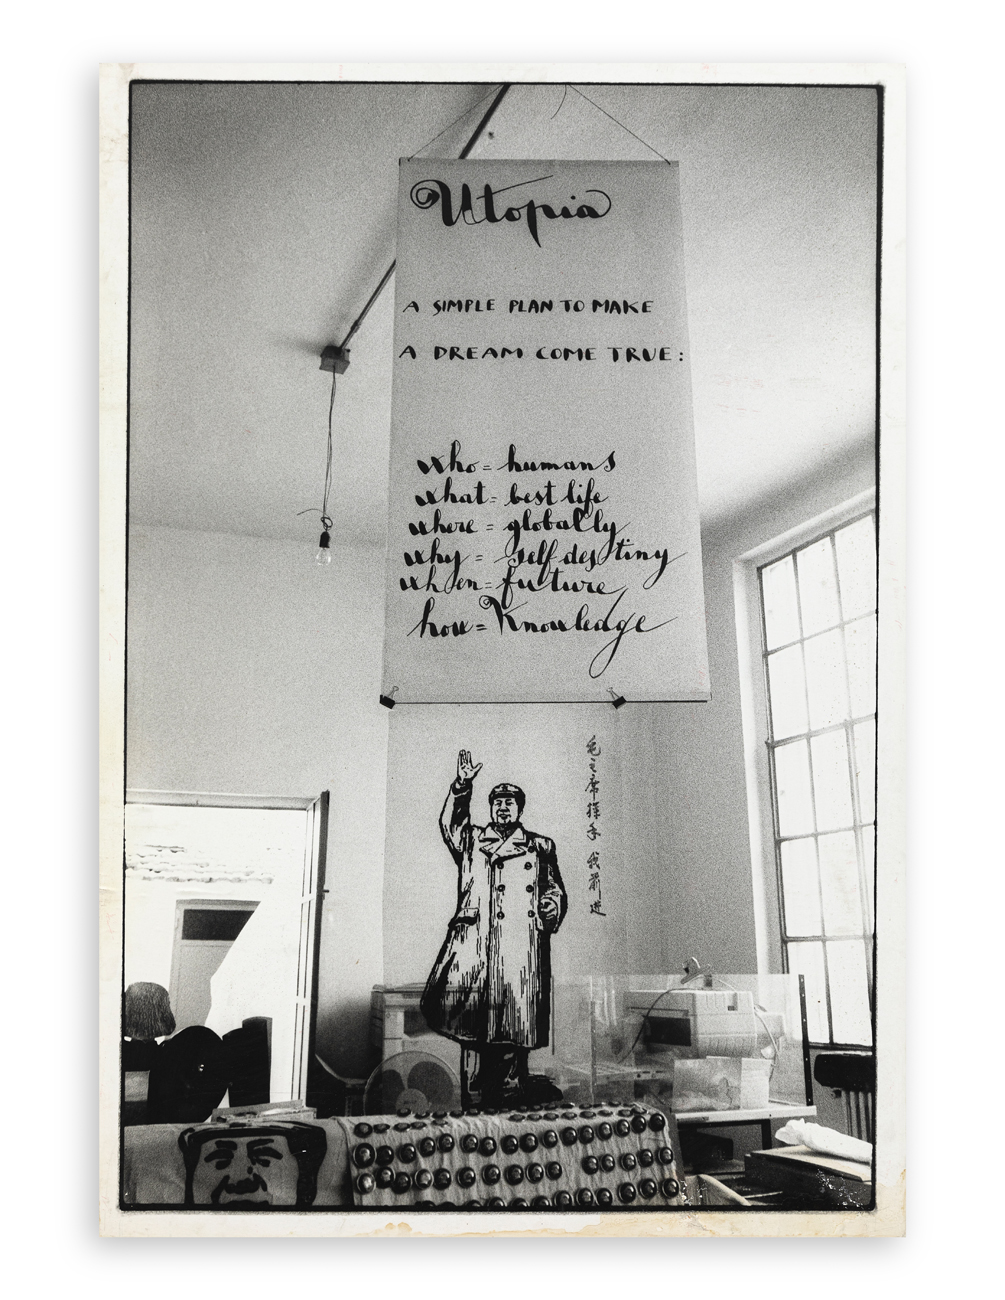 Utopia
A SIMPLE PLAN TO MAKE
A DREAM COME TRUE:
who = humans
what = best life
where = globally
why = self destiny
when = future
how = Knowledge
毛主席揮手我前進